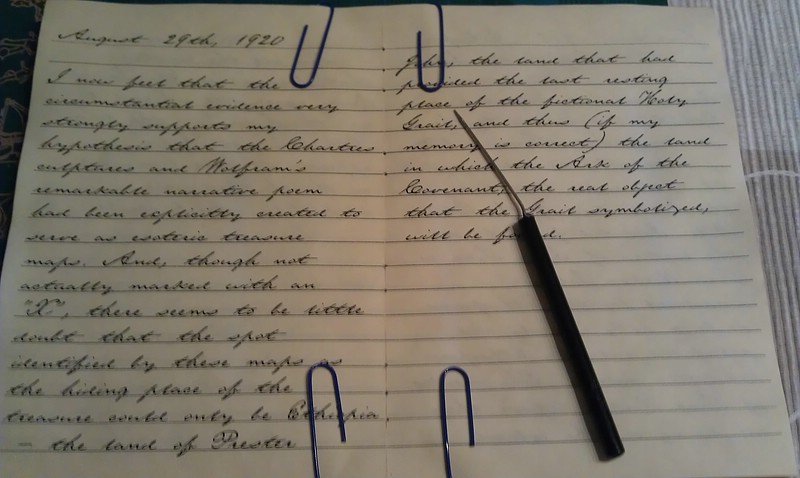 August 29th, 1920
I now feel that the
circumstantial evidence very
strongly supports my
hypothesis that the Chartres
sculptures and Wolfram's
remarkable narrative poem
had been explicitly created to
serve as esoteric treasure
maps. And, though not
actually marked with an
"X", there seems to be little
doubt that the spot
identified by these maps as
the hiding place of the
treasure could only be Ethiopia
— the land of Prester
John, the land that had
provided the last resting
place of the fictional Holy
Grail, and thus (if my
memory is correct) the land
in which the Ark of the
Covenant, the real object
that the Grail symbolized,
will be found.